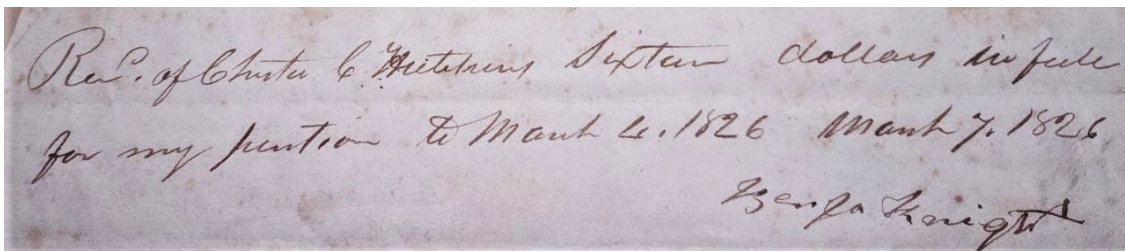 Recd. of Chester C Hutchins Sixteen dollars in full
for my pention to March 4. 1826 March 7. 1826
Benja Knight